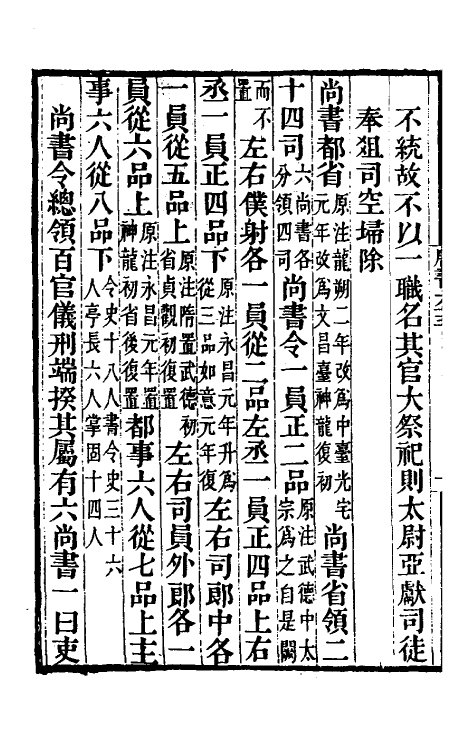 不統故不以一職名其官大祭祀則太尉亞獻司徒
奉俎司空埽除
尚書都省原注龍朔二年改為中臺光宅元年改為文昌臺神龍復初尚書省領二
十四司六尚書各分領四司尚書令一員正二品原注武德中太宗為之自是闕
而不置左右僕射各一員從二品左丞一員正四品上右
丞一員正四品下原注永昌元年升為從三品如意元年復左右司郎中各
一員從五品上原注隋置武德初省貞觀初復置左右司員外郎各一
員從六品上原注永昌元年置神龍初省後復置都事六人從七品上主
事六人從八品下令史十八人書令史三十六人亭長六人掌固十四人
尚書令總領百官儀刑端揆其屬有六尚書一曰吏